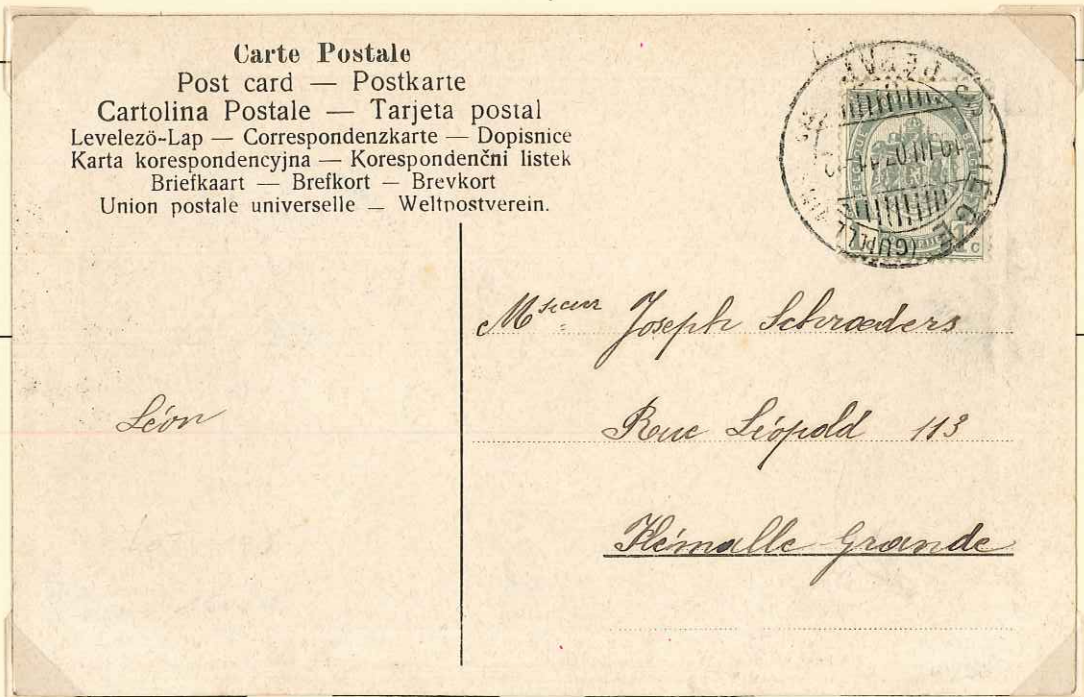 Carte Postale
Post card — Postkarte
Cartolina Postale — Tarjeta postal
Levelezö-Lap — Correspondenzkarte — Dopisnice
Karta korespondencyjna — Korespondenčni listek
Briefkaart — Brefkort — Brevkort
Union postale universelle — Weltpostverein.
LIEGE
(GUILL
Msieur Joseph Schroeders
Rue Léopold 113
Flémalle Grande
Léon